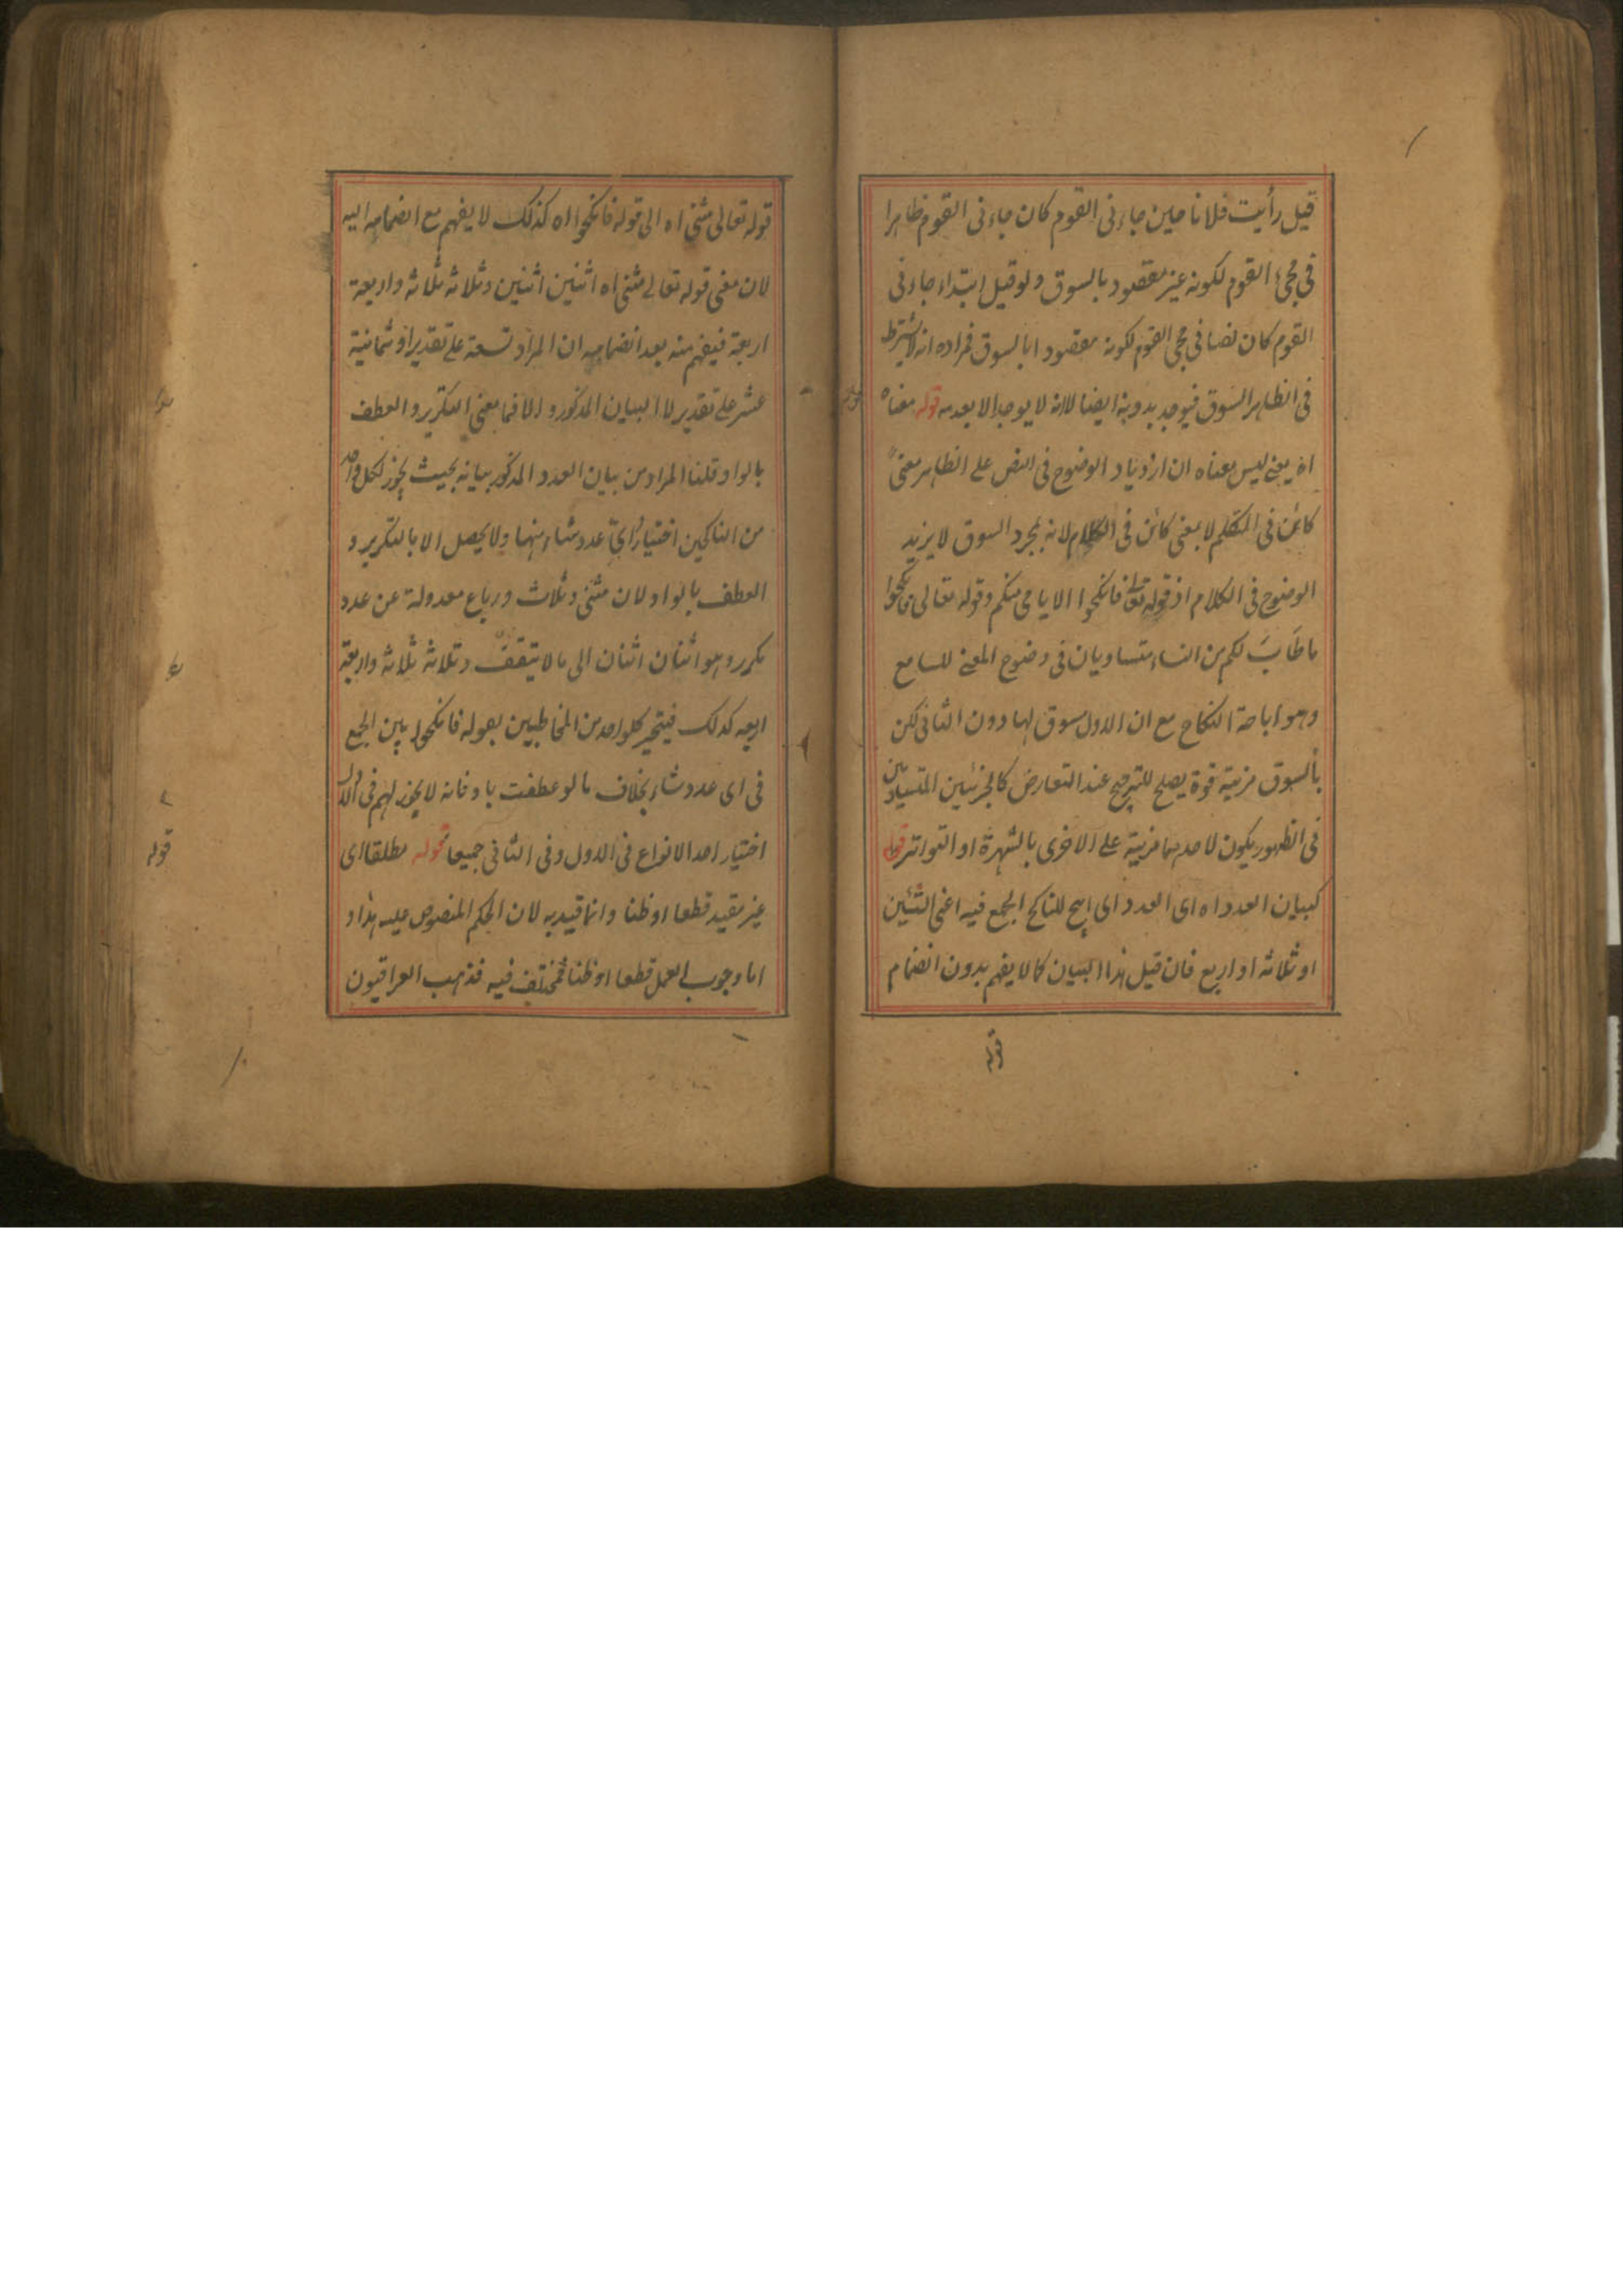 قيل رأيت فلانا حين جاءنى القوم كان جاءنى القوم ظاهرا
فى مجئ القوم لكونه غير مقصود بالسوق ولو قيل ابتداء جاءنى
القوم كان نصا فى مجئ القوم لكونه مقصودا بالسوق فمراده انه لا يشترط
فى الظاهر السوق فيوجد بدونه ايضا لا انه لا يوجد الا بعدمه قوله معناه
اه يعنى ليس معناه ان ازدياد الوضوح فى النص على الظاهر معنىً
كائن فى المتكلم لا بمعنى كائن فى الكلام لانه بمجرد السوق لا يزيد
الوضوح فى الكلام اذ قوله تعالى فانكحوا الايامى منكم وقوله تعالى فانكحوا
ما طَابَ لكم من النساء متساويان فى وضوح المعنى للسامع
وهو اباحة النكاح مع ان الاول مسوق لها دون الثانى لكن
بالسوق مزية قوة يصلح للترجيح عند التعارض كالخبرين المتساويين
فى الظهور يكون لاحدهما مزية على الاخرى بالشهرة او التواتر قوله
كبيان العدد اه اى العدد اى ابيح للناكح الجمع فيه اعنى اثنين
او ثلاثه او اربع فان قيل هذا البيان كما لا يفهم بدون انضمام
قوله
قوله تعالى مثنى اه الى قوله فانكحوا اه كذلك لا يفهم مع انضمامه اليه
لان معنى قوله تعالى مثنى اه اثنين اثنين وثلاثه ثلاثه واربعة
اربعة فيفهم منه بعد انضمامه ان المراد تسعة على تقدير او ثمانية
عشر على تقدير لا البيان المذكور والا فما معنى التكرير والعطف
بالواو قلنا المراد من بيان العدد المذكور بيانه بحيث يجوز لكل واحد
من الناكحين اختيار اىّ عدد شاء منها ولا يحصل الا بالتكرير و
العطف بالواو لان مثنى وثلاث ورباع معدولة عن عدد
مكرر وهو اثنان اثنان الى ما لا يتقف وثلاثه ثلاثه واربعة
اربعه كذلك فيتخير كلواحد من المخاطبين بقوله فانكحوا بين الجمع
فى اى عدد شاء بخلاف ما لو عطفت باو فانه لا يجوز لهم فى الاول
اختيار احد الانواع فى الاول وفى الثانى جميعا قوله مطلقا اى
غير مقيد قطعا او ظنا وانما قيد به لان الحكم المنصوص عليه هذا و
اما وجوب العمل قطعا او ظنا فمختلف فيه فذهب العراقيون
قوله